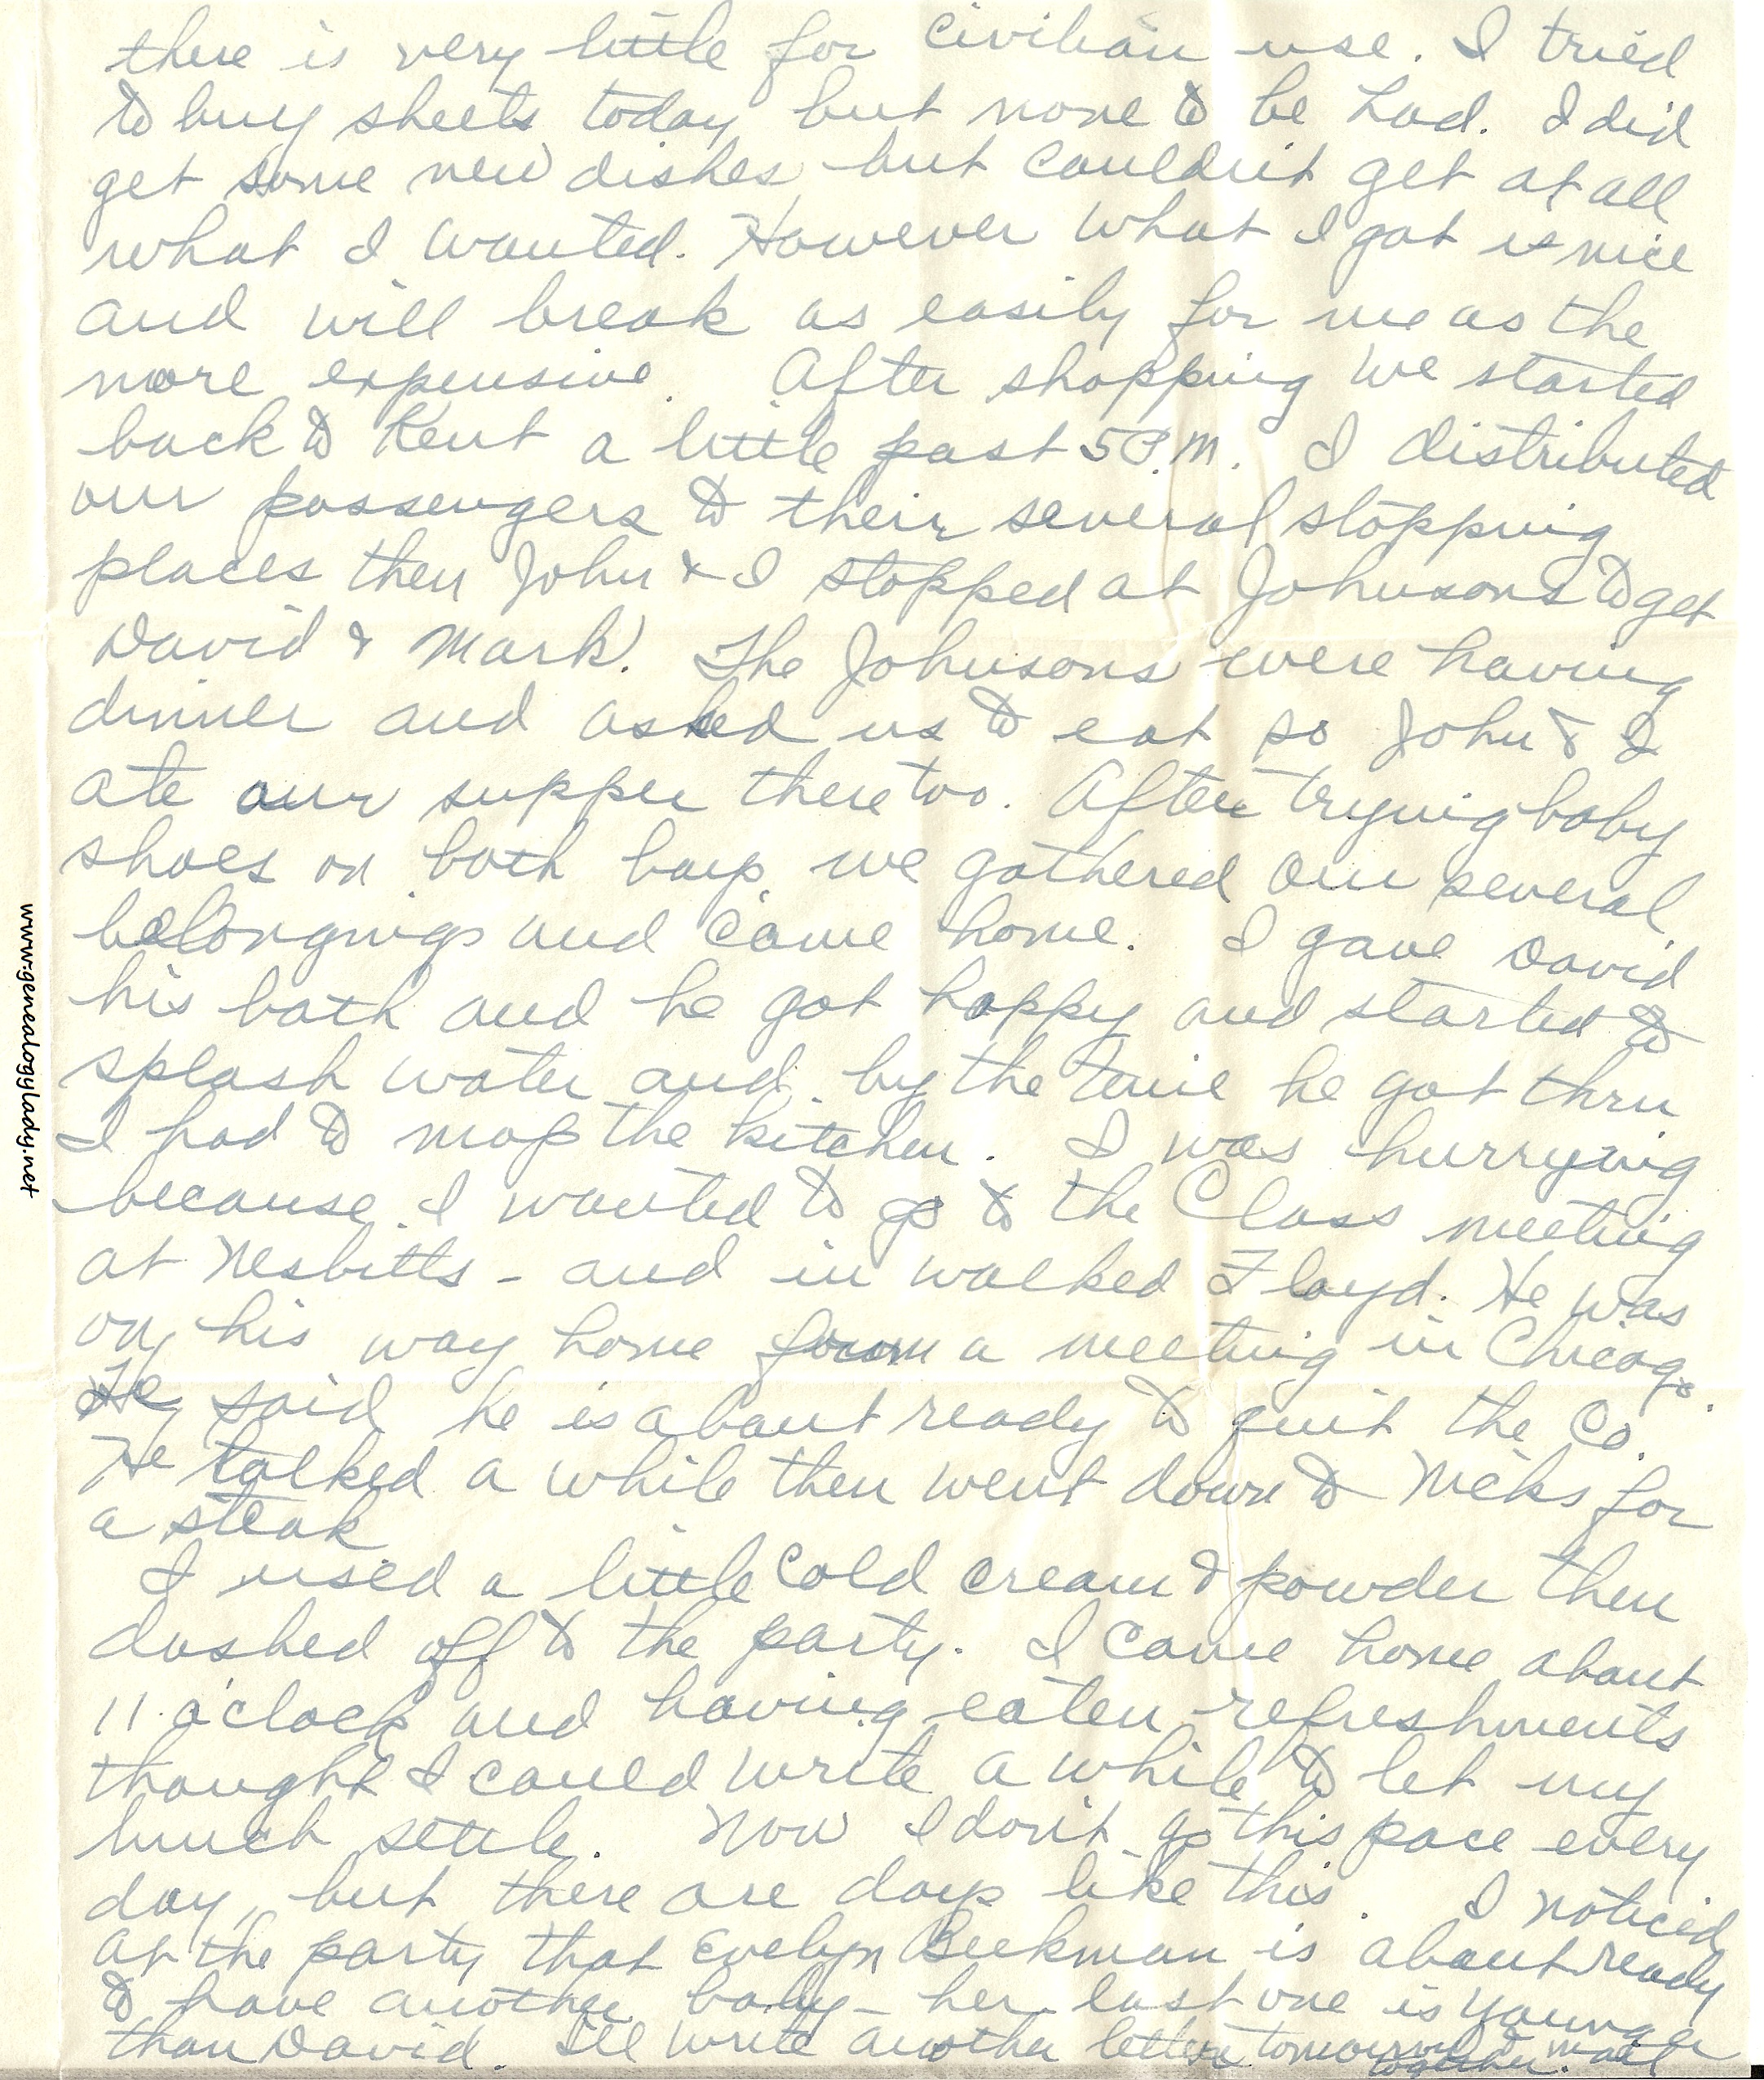 there is very little for civilian use. I tried
to buy sheets today but none to be had. I did
get some new dishes but couldn't get at all
what I wanted. However what I got is nice
and will break as easily for me as the
more expensive. After shopping we started
back to Kent a little past 5 P.M. I distributed
our passengers to their several stopping
places then John & I stopped at Johnsons to get
David & Mark. The Johnsons were having
dinner and asked us to eat so John & I
ate our supper there too. After trying baby
shoes on both boys we gathered our several
belongings and came home. I gave David
his bath and he got happy and started to
splash water and by the time he got thru
I had to mop the kitchen. I was hurrying
because I wanted to go to the Class meeting
at Nesbitts - and in walked Floyd. He was
on his way home from a meeting in Chicago.
He said he is about ready to quit the Co.
He talked a while then went down to Nicks for
a steak
I used a little cold cream & powder then
dashed off to the party. I came home about
11 o'clock and having eaten refreshments
thought I could write a while to let my
lunch settle. Now I don't go this pace every
day, but there are days like this. I noticed
at the party that Evelyn Beekman is about ready
to have another baby - her last one is younger
than David. I'll write another letter tomorrow & mail
together.
www.genealogylady.net